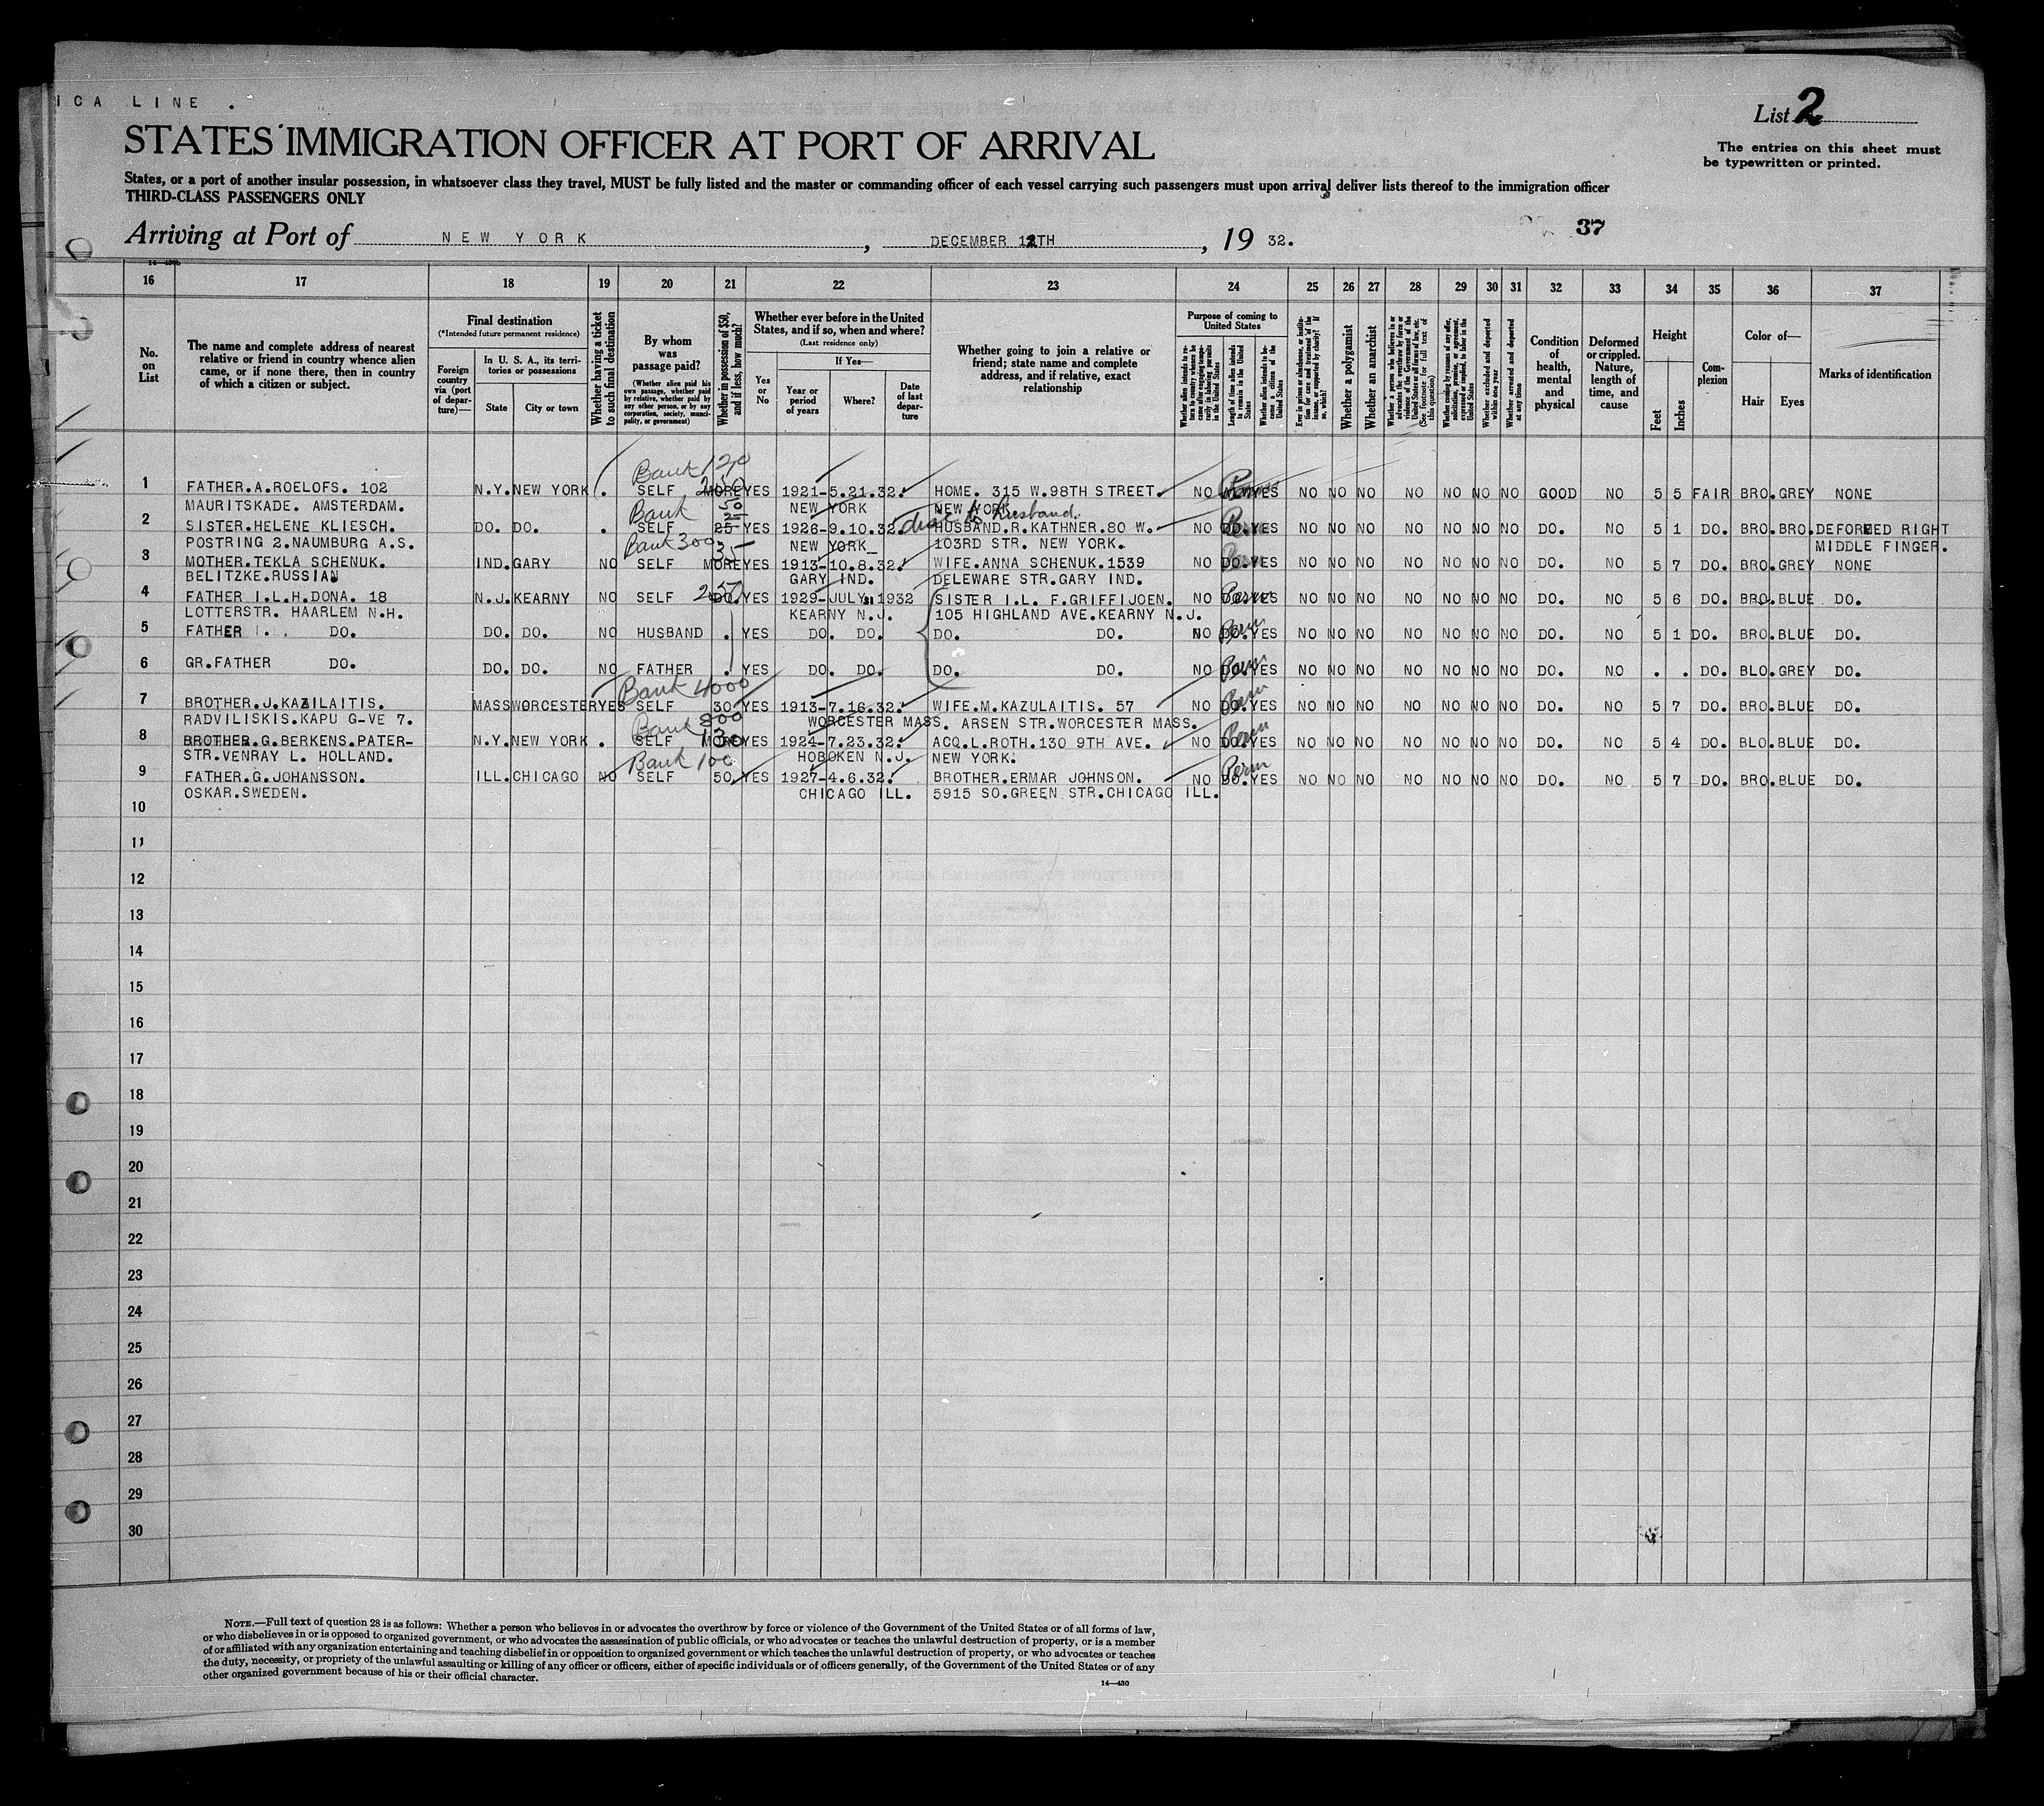 ICA LINE .
List 2
STATES IMMIGRATION OFFICER AT PORT OF ARRIVAL
The entries on this sheet must
be typewritten or printed.
States, or a port of another insular possession, in whatsoever class they travel, MUST be fully listed and the master or commanding officer of each vessel carrying such passengers must upon arrival deliver lists thereof to the immigration officer
THIRD-CLASS PASSENGERS ONLY
Arriving at Port of NEW YORK, DECEMBER 12TH, 19 32.
37
16 17 18 19 20 21 22 23 24 25 26 27 28 29 30 31 32 33 34 35 36 37
No. on List
The name and complete address of nearest relative or friend in country whence alien came, or if none there, then in country of which a citizen or subject.
Final destination
(*Intended future permanent residence)
Foreign country via (port of departure)—
In U. S. A., its territories or possessions
State
City or town
Whether having a ticket to such final destination
By whom was passage paid?
(Whether alien paid his own passage, whether paid by relative, whether paid by any other person, or by any corporation, society, municipality, or government)
Whether in possession of $50, and if less, how much?
Whether ever before in the United States, and if so, when and where?
(Last residence only)
Yes or No
If Yes—
Year or period of years
Where?
Date of last departure
Whether going to join a relative or friend; state name and complete address, and if relative, exact relationship
Purpose of coming to United States
Whether alien intends to return to country whence he came after engaging temporarily in laboring pursuits in the United States
Length of time alien intends to remain in the United States
Whether alien intends to become a citizen of the United States
Ever in prison or almshouse, or institution for care and treatment of the insane, or supported by charity? If so, which?
Whether a polygamist
Whether an anarchist
(See footnote for full text of this question)
Whether excluded and deported within one year
Whether arrested and deported at any time
Condition of health, mental and physical
Deformed or crippled. Nature, length of time, and cause
Height
Feet
Inches
Complexion
Color of—
Hair
Eyes
Marks of identification
Bank 120
1 FATHER.A.ROELOFS. 102 N.Y. NEW YORK . SELF MORE YES 1921-5.21.32. HOME. 315 W.98TH STREET. NO YES NO NO NO NO NO NO NO GOOD NO 5 5 FAIR BRO. GREY NONE
MAURITSKADE. AMSTERDAM. Bank 50 NEW YORK NEW YORK
2 SISTER.HELENE KLIESCH. DO. DO. . SELF 25 YES 1928-9.10.32. HUSBAND.R.KATHNER.80 W. NO DO. YES NO NO NO NO NO NO NO DO. NO 5 1 DO. BRO. BRO. DEFORMED RIGHT
POSTRING 2.NAUMBURG A.S. Bank 300 35 NEW YORK 103RD STR. NEW YORK. MIDDLE FINGER.
3 MOTHER.TEKLA SCHENUK. IND. GARY NO SELF MORE YES 1913-10.8.32. WIFE.ANNA SCHENUK.1539 NO DO. YES NO NO NO NO NO NO NO DO. NO 5 7 DO. BRO. GREY NONE
BELITZKE.RUSSIAN GARY IND. DELEWARE STR.GARY IND.
4 FATHER I.L.H.DONA. 18 N.J. KEARNY NO SELF 250 DO. YES 1929-JULY. 1932 SISTER I.L. F.GRIFFIJOEN. NO DO. YES NO NO NO NO NO NO NO DO. NO 5 6 DO. BRO. BLUE DO.
LOTTERSTR. HAARLEM N.H. KEARNY N.J. 105 HIGHLAND AVE.KEARNY N.J.
5 FATHER DO. DO. DO. NO HUSBAND . YES DO. DO. DO. DO. NO DO. YES NO NO NO NO NO NO NO DO. NO 5 1 DO. BRO. BLUE DO.
6 GR.FATHER DO. DO. DO. NO FATHER . YES DO. DO. DO. DO. NO DO. YES NO NO NO NO NO NO NO DO. NO . . DO. BLO. GREY DO.
Bank 4000
7 BROTHER.J.KAZILAITIS. MASS WORCESTER YES SELF 30 YES 1913-7.16.32. WIFE.M.KAZULAITIS. 57 NO DO. YES NO NO NO NO NO NO NO DO. NO 5 7 DO. BRO. BLUE DO.
RADVILISKIS.KAPU G-VE 7. Bank 800 WORCESTER MASS. ARSEN STR.WORCESTER MASS.
8 BROTHER.G.BERKENS.PATER- N.Y. NEW YORK . SELF MORE 130 YES 1924-7.23.32. ACQ.L.ROTH.130 9TH AVE. NO DO. YES NO NO NO NO NO NO NO DO. NO 5 4 DO. BLO. BLUE DO.
STR.VENRAY L. HOLLAND. Bank 100 HOBOKEN N.J. NEW YORK.
9 FATHER.G.JOHANSSON. ILL. CHICAGO NO SELF 50 YES 1927-4.6.32. BROTHER.ERMAR JOHNSON. NO DO. YES NO NO NO NO NO NO NO DO. NO 5 7 DO. BRO. BLUE DO.
OSKAR.SWEDEN. CHICAGO ILL. 5915 SO.GREEN STR.CHICAGO ILL.
10
11
12
13
14
15
16
17
18
19
20
21
22
23
24
25
26
27
28
29
30
NOTE.—Full text of question 28 is as follows: Whether a person who believes in or advocates the overthrow by force or violence of the Government of the United States or of all forms of law,
or who disbelieves in or is opposed to organized government, or who advocates the assassination of public officials, or who advocates or teaches the unlawful destruction of property, or is a member
of or affiliated with any organization entertaining and teaching disbelief in or opposition to organized government or which teaches the unlawful destruction of property, or who advocates or teaches
the duty, necessity, or propriety of the unlawful assaulting or killing of any officer or officers, either of specific individuals or of officers generally, of the Government of the United States or of any
other organized government because of his or their official character.
14—430